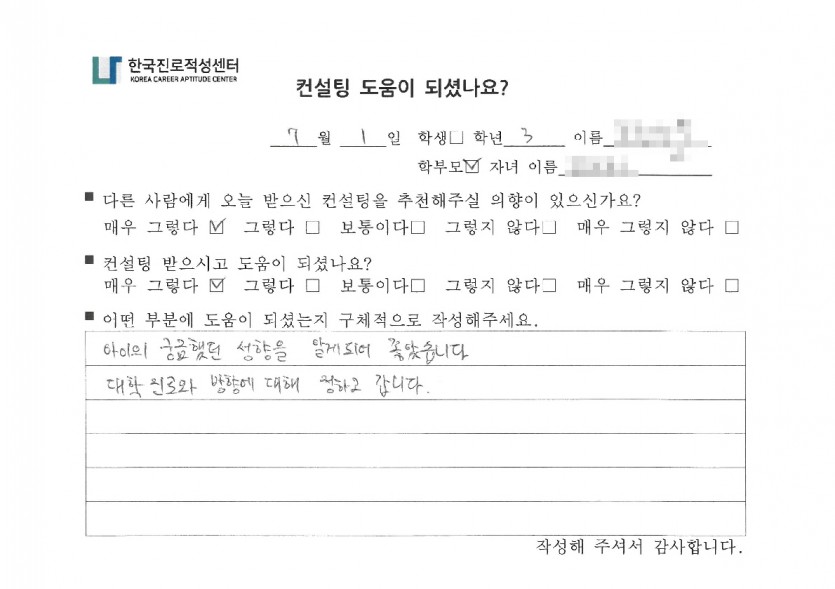 한국진로적성센터
KOREA CAREER APTITUDE CENTER
컨설팅 도움이 되셨나요?
7 월 1 일 학생□ 학년 3 이름
학부모☑ 자녀 이름
■ 다른 사람에게 오늘 받으신 컨설팅을 추천해주실 의향이 있으신가요?
매우 그렇다 ☑ 그렇다 □ 보통이다□ 그렇지 않다□ 매우 그렇지 않다 □
■ 컨설팅 받으시고 도움이 되셨나요?
매우 그렇다 ☑ 그렇다 □ 보통이다□ 그렇지 않다□ 매우 그렇지 않다 □
■ 어떤 부분에 도움이 되셨는지 구체적으로 작성해주세요.
아이의 궁금했던 성향을 알게되어 좋았습니다
대학 진로와 방향에 대해 정하고 갑니다.
작성해 주셔서 감사합니다.